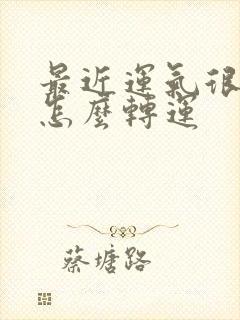 最近運氣很
怎麼轉運
蔡塘路